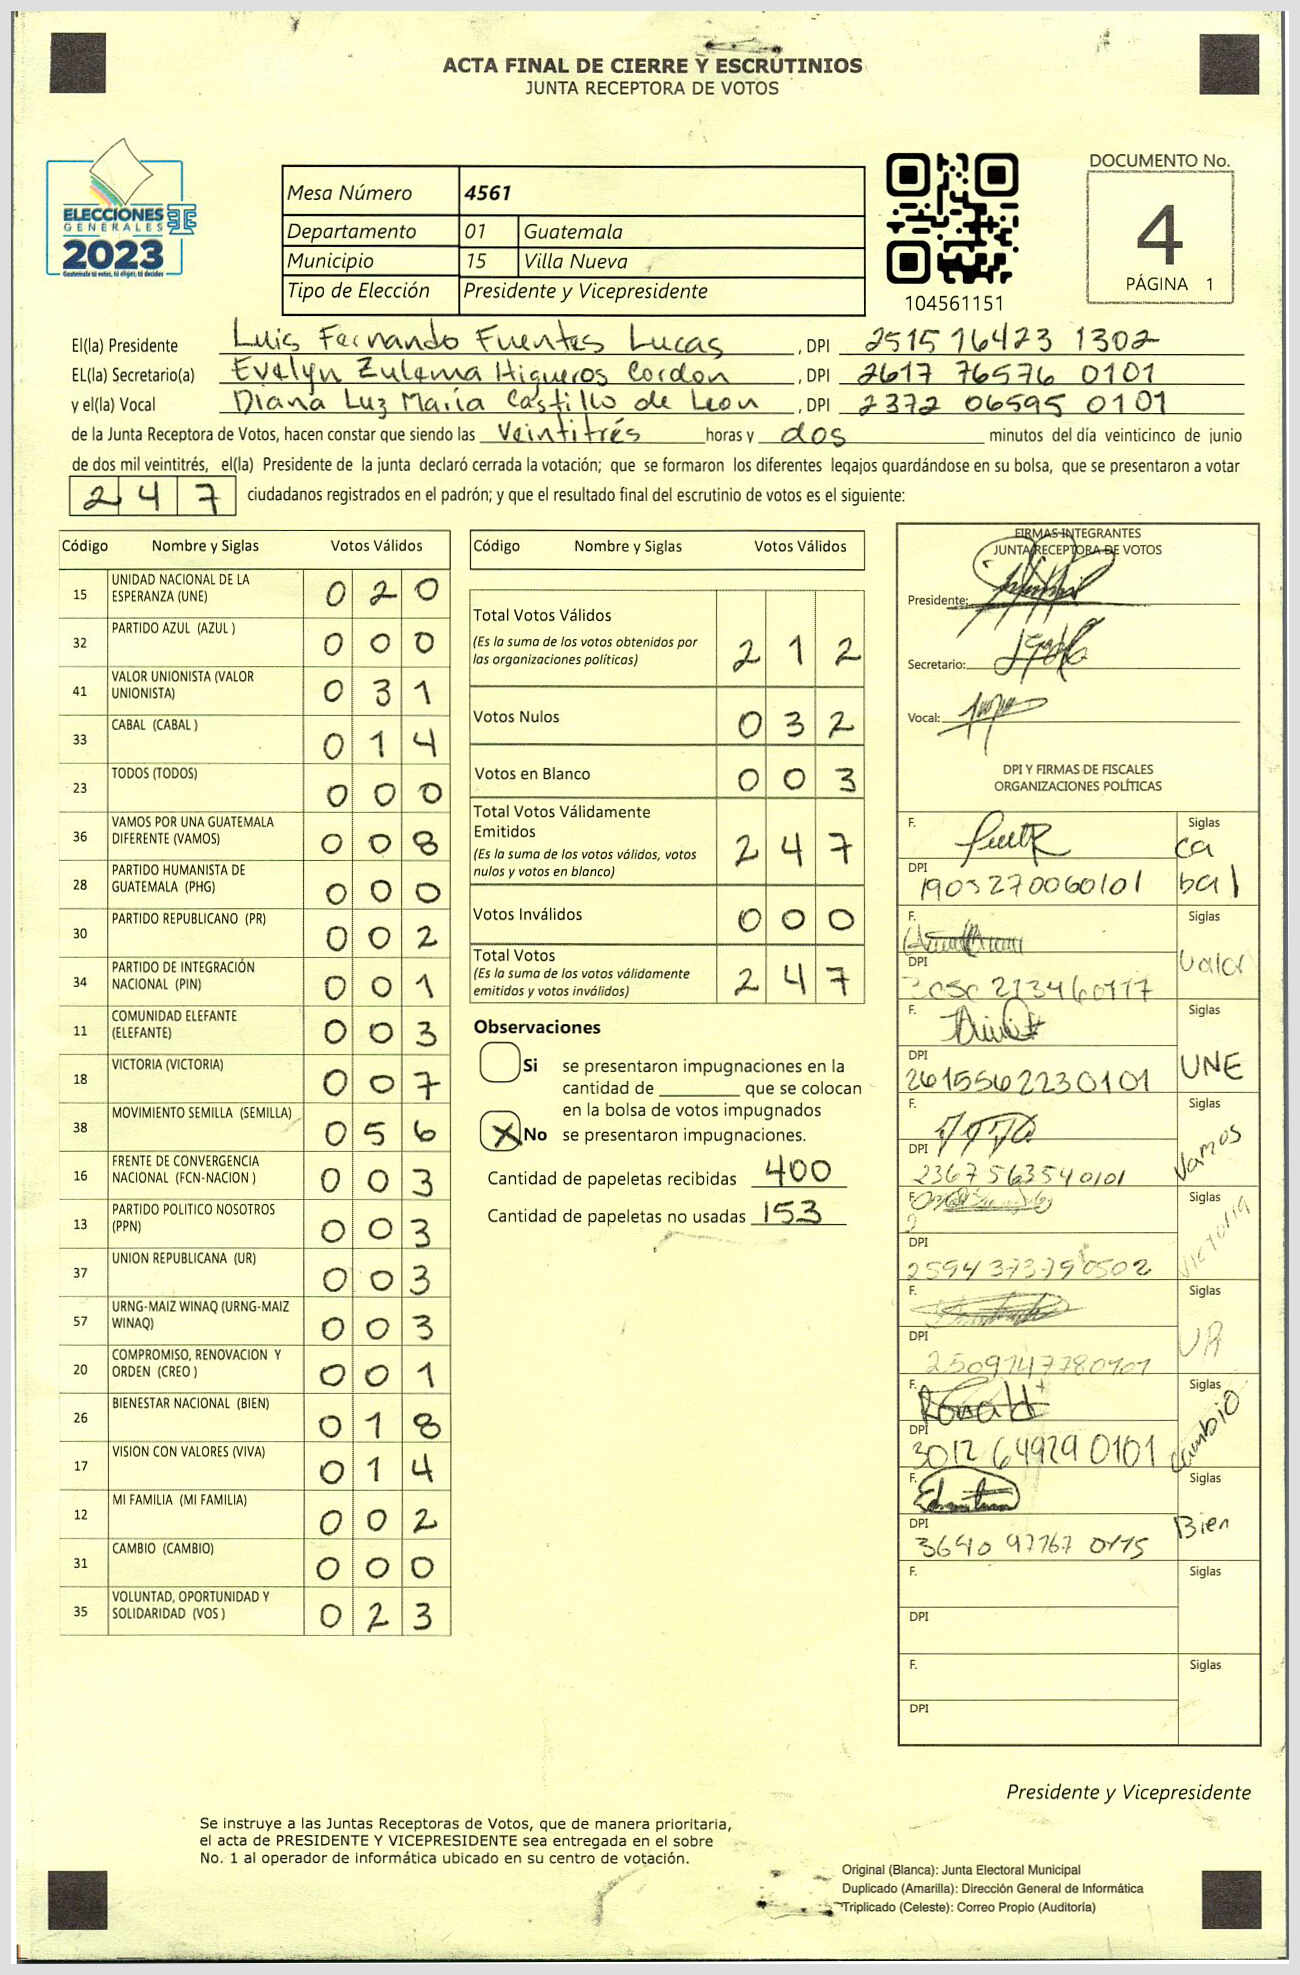 ACTA FINAL DE CIERRE Y ESCRUTINIOS
JUNTA RECEPTORA DE VOTOS
ELECCIONES
GENERALES
2023
Guatemala tú votas, tú eliges, tú decides
Mesa Número 4561
Departamento 01 Guatemala
Municipio 15 Villa Nueva
Tipo de Elección Presidente y Vicepresidente
104561151
DOCUMENTO No.
4
PÁGINA 1
El(la) Presidente Luis Fernando Fuentes Lucas , DPI 2515 16423 1302
EL(la) Secretario(a) Evelyn Zulema Higueros Cordon , DPI 2617 76576 0101
y el(la) Vocal Diana Luz María Castillo de Leon , DPI 2372 06595 0101
de la Junta Receptora de Votos, hacen constar que siendo las Veintitrés horas y dos minutos del día veinticinco de junio
de dos mil veintitrés, el(la) Presidente de la junta declaró cerrada la votación; que se formaron los diferentes legajos guardándose en su bolsa, que se presentaron a votar
247 ciudadanos registrados en el padrón; y que el resultado final del escrutinio de votos es el siguiente:
Código Nombre y Siglas Votos Válidos
15 UNIDAD NACIONAL DE LA ESPERANZA (UNE) 0 2 0
32 PARTIDO AZUL (AZUL ) 0 0 0
41 VALOR UNIONISTA (VALOR UNIONISTA) 0 3 1
33 CABAL (CABAL ) 0 1 4
23 TODOS (TODOS) 0 0 0
36 VAMOS POR UNA GUATEMALA DIFERENTE (VAMOS) 0 0 8
28 PARTIDO HUMANISTA DE GUATEMALA (PHG) 0 0 0
30 PARTIDO REPUBLICANO (PR) 0 0 2
34 PARTIDO DE INTEGRACIÓN NACIONAL (PIN) 0 0 1
11 COMUNIDAD ELEFANTE (ELEFANTE) 0 0 3
18 VICTORIA (VICTORIA) 0 0 7
38 MOVIMIENTO SEMILLA (SEMILLA) 0 5 6
16 FRENTE DE CONVERGENCIA NACIONAL (FCN-NACION ) 0 0 3
13 PARTIDO POLITICO NOSOTROS (PPN) 0 0 3
37 UNION REPUBLICANA (UR) 0 0 3
57 URNG-MAIZ WINAQ (URNG-MAIZ WINAQ) 0 0 3
20 COMPROMISO, RENOVACION Y ORDEN (CREO ) 0 0 1
26 BIENESTAR NACIONAL (BIEN) 0 1 8
17 VISION CON VALORES (VIVA) 0 1 4
12 MI FAMILIA (MI FAMILIA) 0 0 2
31 CAMBIO (CAMBIO) 0 0 0
35 VOLUNTAD, OPORTUNIDAD Y SOLIDARIDAD (VOS ) 0 2 3
Código Nombre y Siglas Votos Válidos
Total Votos Válidos 2 1 2
(Es la suma de los votos obtenidos por
las organizaciones políticas)
Votos Nulos 0 3 2
Votos en Blanco 0 0 3
Total Votos Válidamente
Emitidos 2 4 7
(Es la suma de los votos válidos, votos
nulos y votos en blanco)
Votos Inválidos 0 0 0
Total Votos 2 4 7
(Es la suma de los votos válidamente
emitidos y votos inválidos)
Observaciones
Si se presentaron impugnaciones en la
cantidad de ________ que se colocan
en la bolsa de votos impugnados
X No se presentaron impugnaciones.
Cantidad de papeletas recibidas 400
Cantidad de papeletas no usadas 153
FIRMAS INTEGRANTES
JUNTA RECEPTORA DE VOTOS
Presidente:
Secretario:
Vocal:
DPI Y FIRMAS DE FISCALES
ORGANIZACIONES POLÍTICAS
F. Siglas
Ca
bal
DPI 1903270060101
F. Siglas
Valor
DPI
F. Siglas
UNE
DPI 2615562230101
F. Siglas
Vamos
DPI 2367 56354 0101
F. Siglas
Victoria
DPI 2594 37379 0502
F. Siglas
UR
DPI
F. Ronald Siglas
Cambio
DPI 3012 64929 0101
F. Siglas
Bien
DPI 3640 97767 0115
F. Siglas
DPI
F. Siglas
DPI
Presidente y Vicepresidente
Se instruye a las Juntas Receptoras de Votos, que de manera prioritaria,
el acta de PRESIDENTE Y VICEPRESIDENTE sea entregada en el sobre
No. 1 al operador de informática ubicado en su centro de votación.
Original (Blanca): Junta Electoral Municipal
Duplicado (Amarilla): Dirección General de Informática
Triplicado (Celeste): Correo Propio (Auditoría)